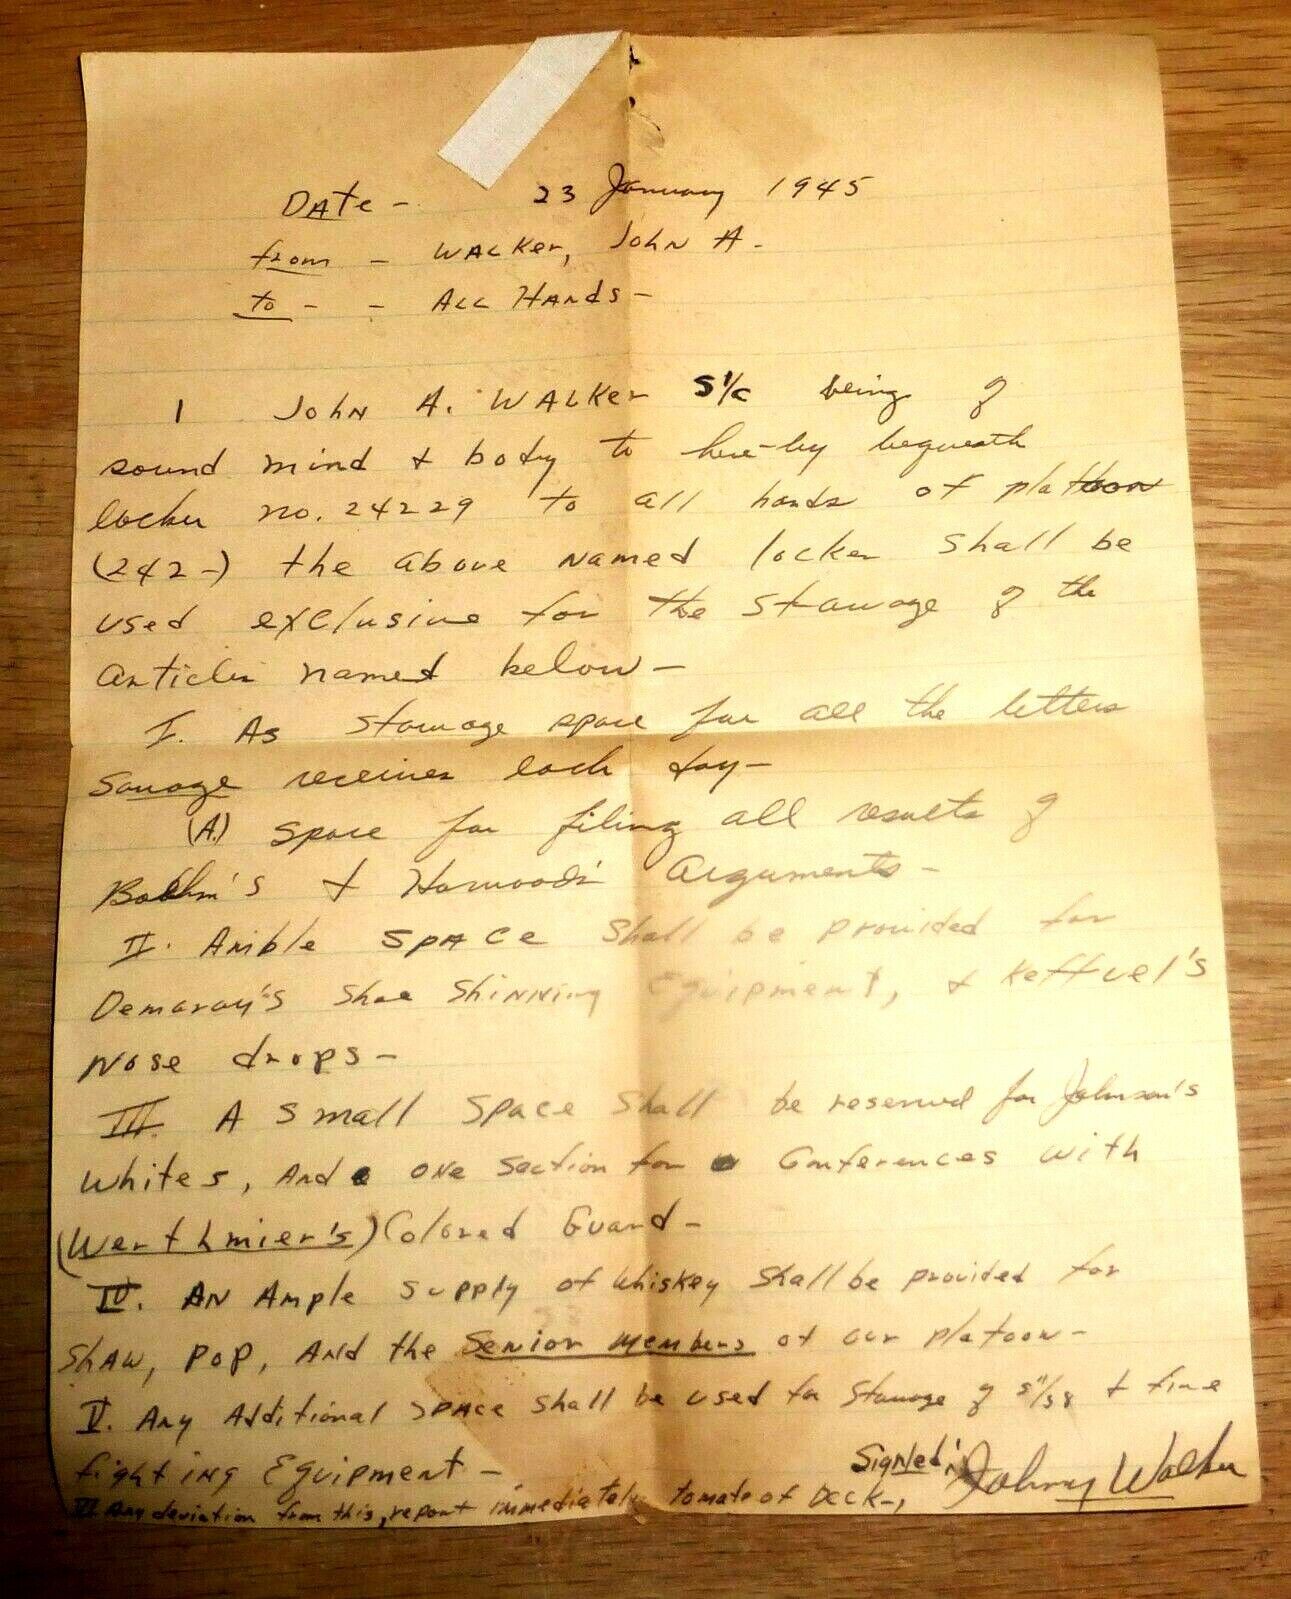 DATE - 23 January 1945
from - WALKER, John A -
to - - ALL HANDS -
I John A. WALKER S1/c being of
sound mind & body to here-by bequeath
locker no. 24229 to all hands of platoon
(242-) the above named locker shall be
used exclusive for the stowage of the
articles named below -
I. As stowage space for all the letters
Savage receives each day -
(A.) Space for filing all results of
Boehm's & Harwood's Arguments -
II. Amble SPACE shall be provided for
Demaray's shoe shinning Equipment, & Keffuel's
Nose drops -
III. A small SPACE shall be reserved for Johnson's
Whites, And one section for Conferences with
(Werthmier's) Colored Guard -
IV. AN Ample supply of Whiskey shall be provided for
SHAW, POP, AND the Senior members of our platoon -
V. Any Additional SPACE shall be used for stowage of & fire
fighting Equipment - Signed; Johnny Walker
VI Any deviation from this, report immediately to mate of Deck -,